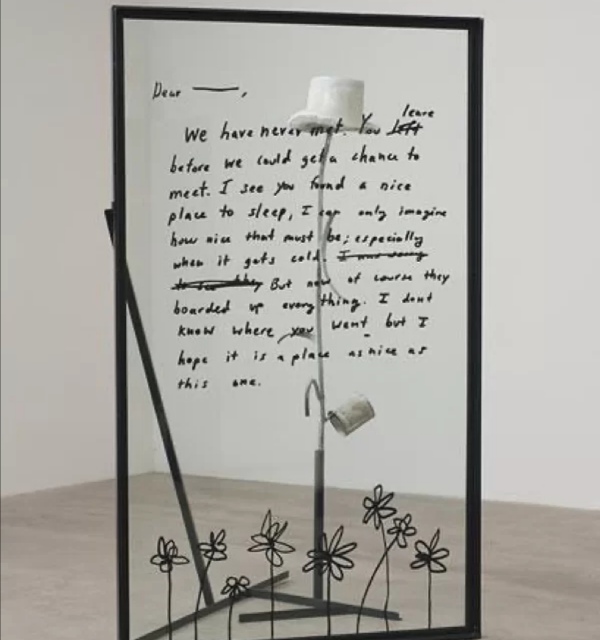 Dear ——,
We have never met. You leave
before we could get a chance to
meet. I see you found a nice
place to sleep, I can only imagine
how nice that must be; especially
when it gets cold.
But now of course they
boarded up everything. I dont
know where you want but I
hope it is a place as nice as
this one.